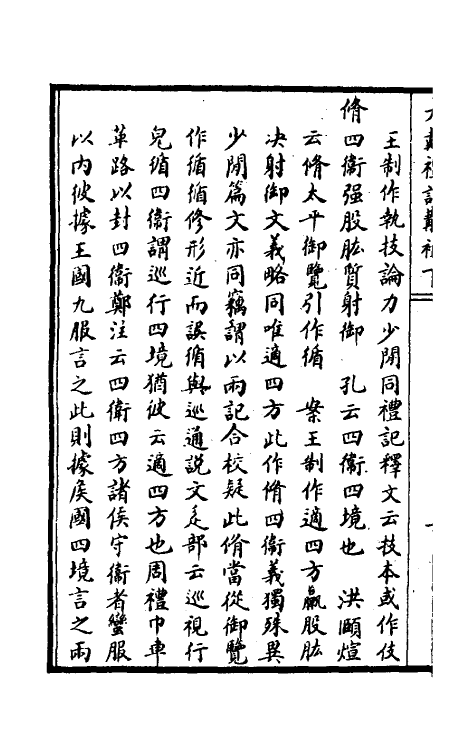 大戴禮記斠補下
王制作執技論力少閒同禮記釋文云技本或作伎
脩四衞强股肱質射御　孔云四衞四境也　洪頤煊
云脩太平御覽引作循　案王制作適四方臝股肱
決射御文義略同唯適四方此作脩四衞義獨殊異
少閒篇文亦同竊謂以兩記合校疑此脩當從御覽
作循循修形近而誤循與巡通説文辵部云巡視行
皃循四衞謂巡行四境猶彼云適四方也周禮巾車
革路以封四衞鄭注云四衞四方諸侯守衞者蠻服
以内彼據王國九服言之此則據矦國四境言之兩